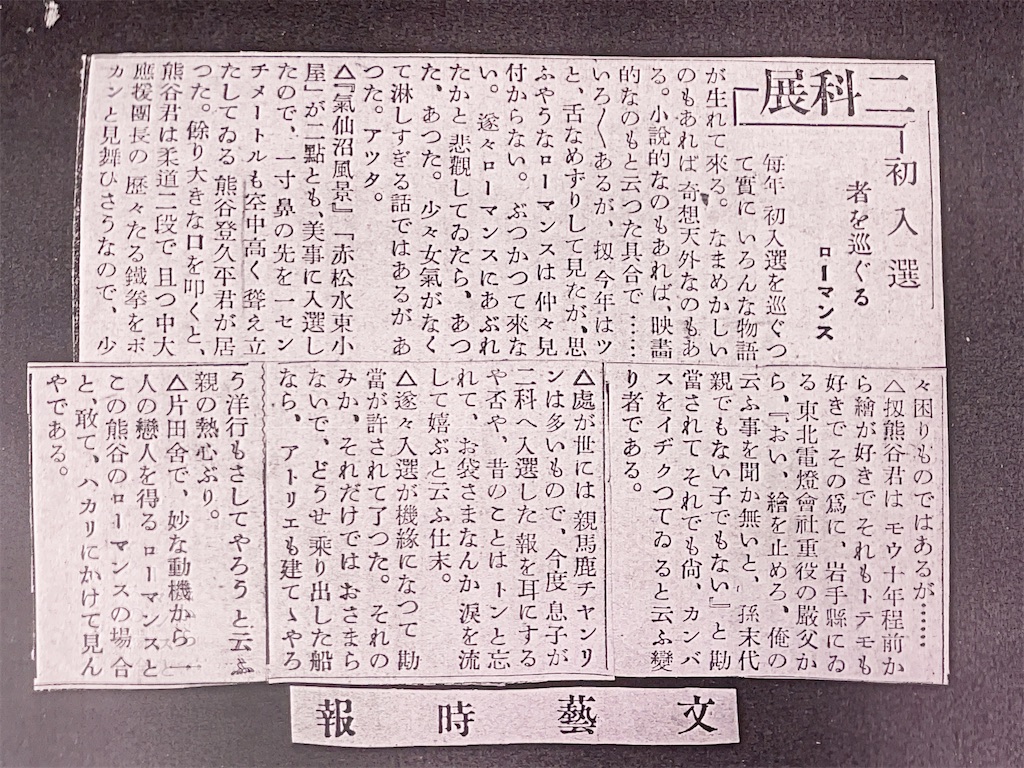 二科展
初入選
者を巡ぐる
ローマンス
毎年 初入選を巡ぐつ
て實に いろんな物語
が生れて來る。 なまめかしい
のもあれば 奇想天外なのもあ
る。小説的なのもあれば、映畫
的なのもと云つた具合で……
いろ〳〵あるが、扨 今年はツ
と、舌なめずりして見たが、思
ふやうなローマンスは仲々見
付からない。ぶつかつて來な
い。 遂々ローマンスにあぶれ
たかと 悲觀してゐたら、あつ
た、あつた。少々女氣がなく
て淋しすぎる話ではあるが あ
つた。アツタ。
△『氣仙沼風景』「赤松水東小
屋」が二點とも、美事に入選し
たので、一寸 鼻の先を一セン
チメートルも空中高く 聳え立
たしてゐる 熊谷登久平君が居
つた。餘り大きな口を叩くと、
熊谷君は柔道二段で 且つ中大
應援團長の 歷々たる鐵拳をポ
カンと見舞ひさうなので、少
々困りものではあるが……
△扨熊谷君は モウ十年程前か
ら繪が好きで それもトテモも
好きで その爲に、岩手縣にゐ
る 東北電燈會社重役の嚴父か
ら、『おい、繪を止めろ、俺の
云ふ事を聞か無いと、孫末代
親でもない子でもない』と勘
當されて それでも尙、カンバ
スをイヂクつてゐると云ふ變
り者である。
△處が世には 親馬鹿チヤンリ
ンは多いもので、今度 息子が
二科へ入選した 報を耳にする
や否や、昔のことは トンと忘
れて、お袋さまなんか 涙を流
して嬉ぶと云ふ仕末。
△遂々入選が機緣になつて 勘
當が許されて了つた。それの
みか、それだけでは おさまら
ないで、どうせ乘り出した船
なら、アトリエも建てゝやろ
う洋行もさしてやろう と云ふ
親の熱心ぶり。
△片田舍で、妙な動機から 一
人の戀人を得る ローマンスと
この熊谷のローマンスの場合
と、敢て、ハカリにかけて見ん
やである。
文藝時報